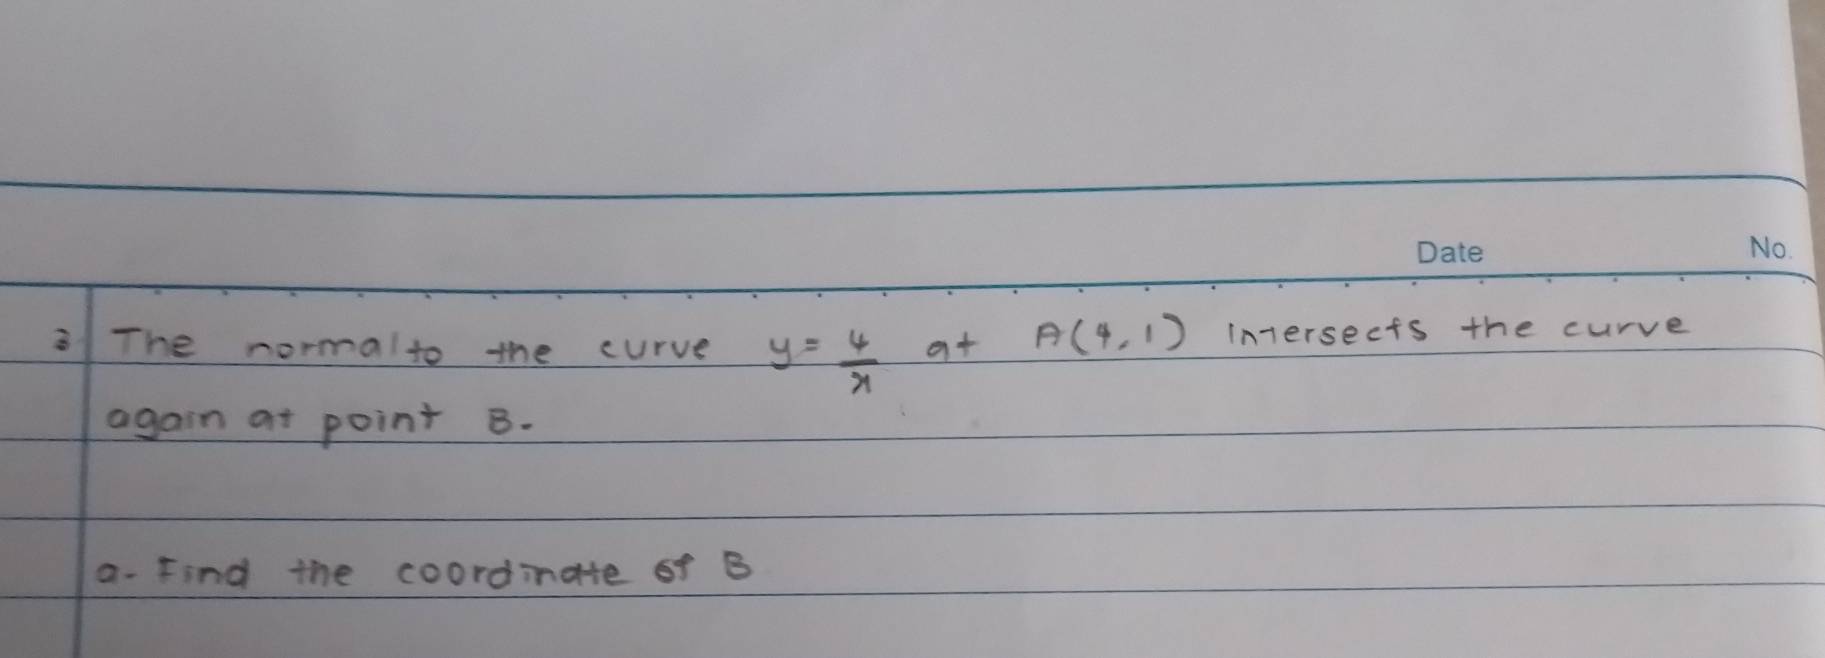 Date No.
3 The normal to the curve y = 4/x at A(4,1) intersects the curve
again at point B.
a. Find the coordinate of B